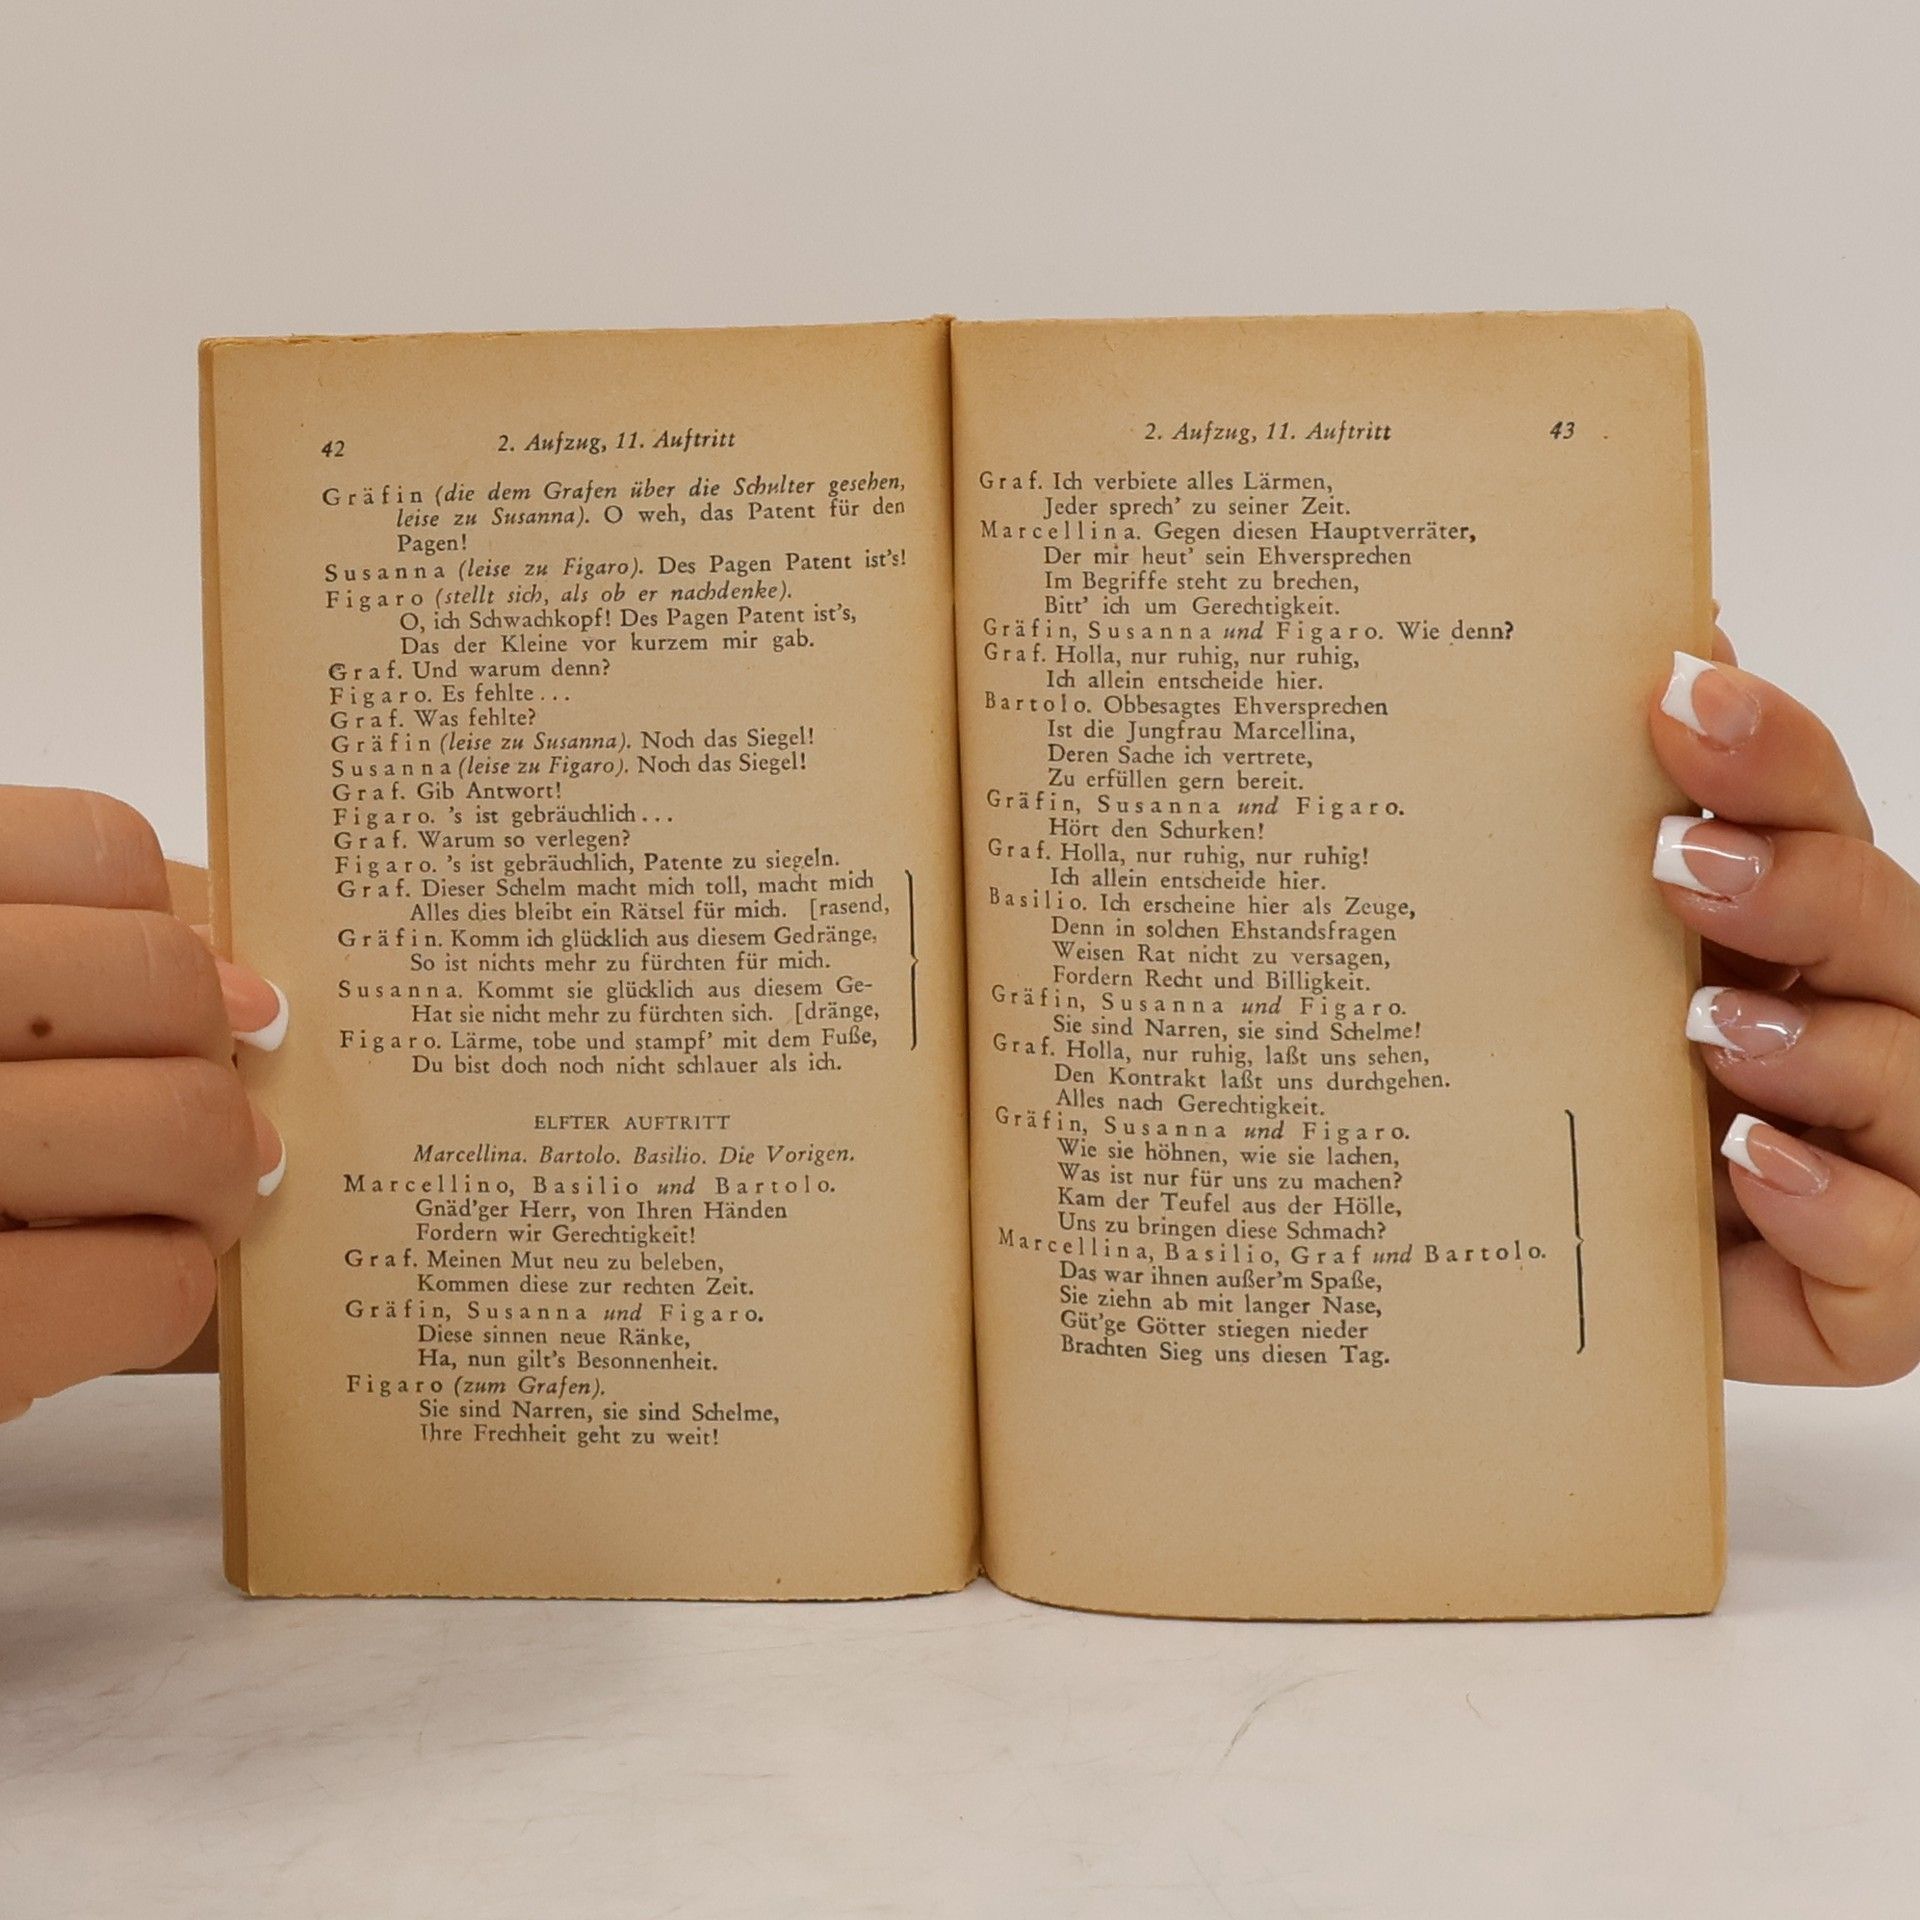 42 2. Aufzug, 11. Auftritt
Gräfin (die dem Grafen über die Schulter gesehen,
leise zu Susanna). O weh, das Patent für den
Pagen!
Susanna (leise zu Figaro). Des Pagen Patent ist's!
Figaro (stellt sich, als ob er nachdenke).
O, ich Schwachkopf! Des Pagen Patent ist's,
Das der Kleine vor kurzem mir gab.
Graf. Und warum denn?
Figaro. Es fehlte...
Graf. Was fehlte?
Gräfin (leise zu Susanna). Noch das Siegel!
Susanna (leise zu Figaro). Noch das Siegel!
Graf. Gib Antwort!
Figaro. 's ist gebräuchlich...
Graf. Warum so verlegen?
Figaro. 's ist gebräuchlich, Patente zu siegeln.
Graf. Dieser Schelm macht mich toll, macht mich
Alles dies bleibt ein Rätsel für mich. [rasend,
Gräfin. Komm ich glücklich aus diesem Gedränge,
So ist nichts mehr zu fürchten für mich.
Susanna. Kommt sie glücklich aus diesem Ge-
Hat sie nicht mehr zu fürchten sich. [dränge,
Figaro. Lärme, tobe und stampf' mit dem Fuße,
Du bist doch noch nicht schlauer als ich.
ELFTER AUFTRITT
Marcellina. Bartolo. Basilio. Die Vorigen.
Marcellino, Basilio und Bartolo.
Gnäd'ger Herr, von Ihren Händen
Fordern wir Gerechtigkeit!
Graf. Meinen Mut neu zu beleben,
Kommen diese zur rechten Zeit.
Gräfin, Susanna und Figaro.
Diese sinnen neue Ränke,
Ha, nun gilt's Besonnenheit.
Figaro (zum Grafen).
Sie sind Narren, sie sind Schelme,
Ihre Frechheit geht zu weit!
2. Aufzug, 11. Auftritt 43
Graf. Ich verbiete alles Lärmen,
Jeder sprech' zu seiner Zeit.
Marcellina. Gegen diesen Hauptverräter,
Der mir heut' sein Ehversprechen
Im Begriffe steht zu brechen,
Bitt' ich um Gerechtigkeit.
Gräfin, Susanna und Figaro. Wie denn?
Graf. Holla, nur ruhig, nur ruhig,
Ich allein entscheide hier.
Bartolo. Obbesagtes Ehversprechen
Ist die Jungfrau Marcellina,
Deren Sache ich vertrete,
Zu erfüllen gern bereit.
Gräfin, Susanna und Figaro.
Hört den Schurken!
Graf. Holla, nur ruhig, nur ruhig!
Ich allein entscheide hier.
Basilio. Ich erscheine hier als Zeuge,
Denn in solchen Ehstandsfragen
Weisen Rat nicht zu versagen,
Fordern Recht und Billigkeit.
Gräfin, Susanna und Figaro.
Sie sind Narren, sie sind Schelme!
Graf. Holla, nur ruhig, laßt uns sehen,
Den Kontrakt laßt uns durchgehen.
Alles nach Gerechtigkeit.
Gräfin, Susanna und Figaro.
Wie sie höhnen, wie sie lachen,
Was ist nur für uns zu machen?
Kam der Teufel aus der Hölle,
Uns zu bringen diese Schmach?
Marcellina, Basilio, Graf und Bartolo.
Das war ihnen außer'm Spaße,
Sie ziehn ab mit langer Nase,
Güt'ge Götter stiegen nieder
Brachten Sieg uns diesen Tag.